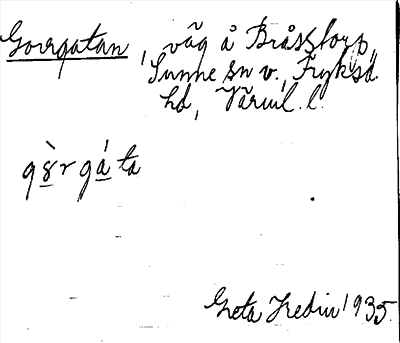 Gorrgatan, väg å Bråstorp,
Sunne sn v., Fryksd.
hd, Värml. l.
gȣ̀r gáta
Greta Hedin 1935.